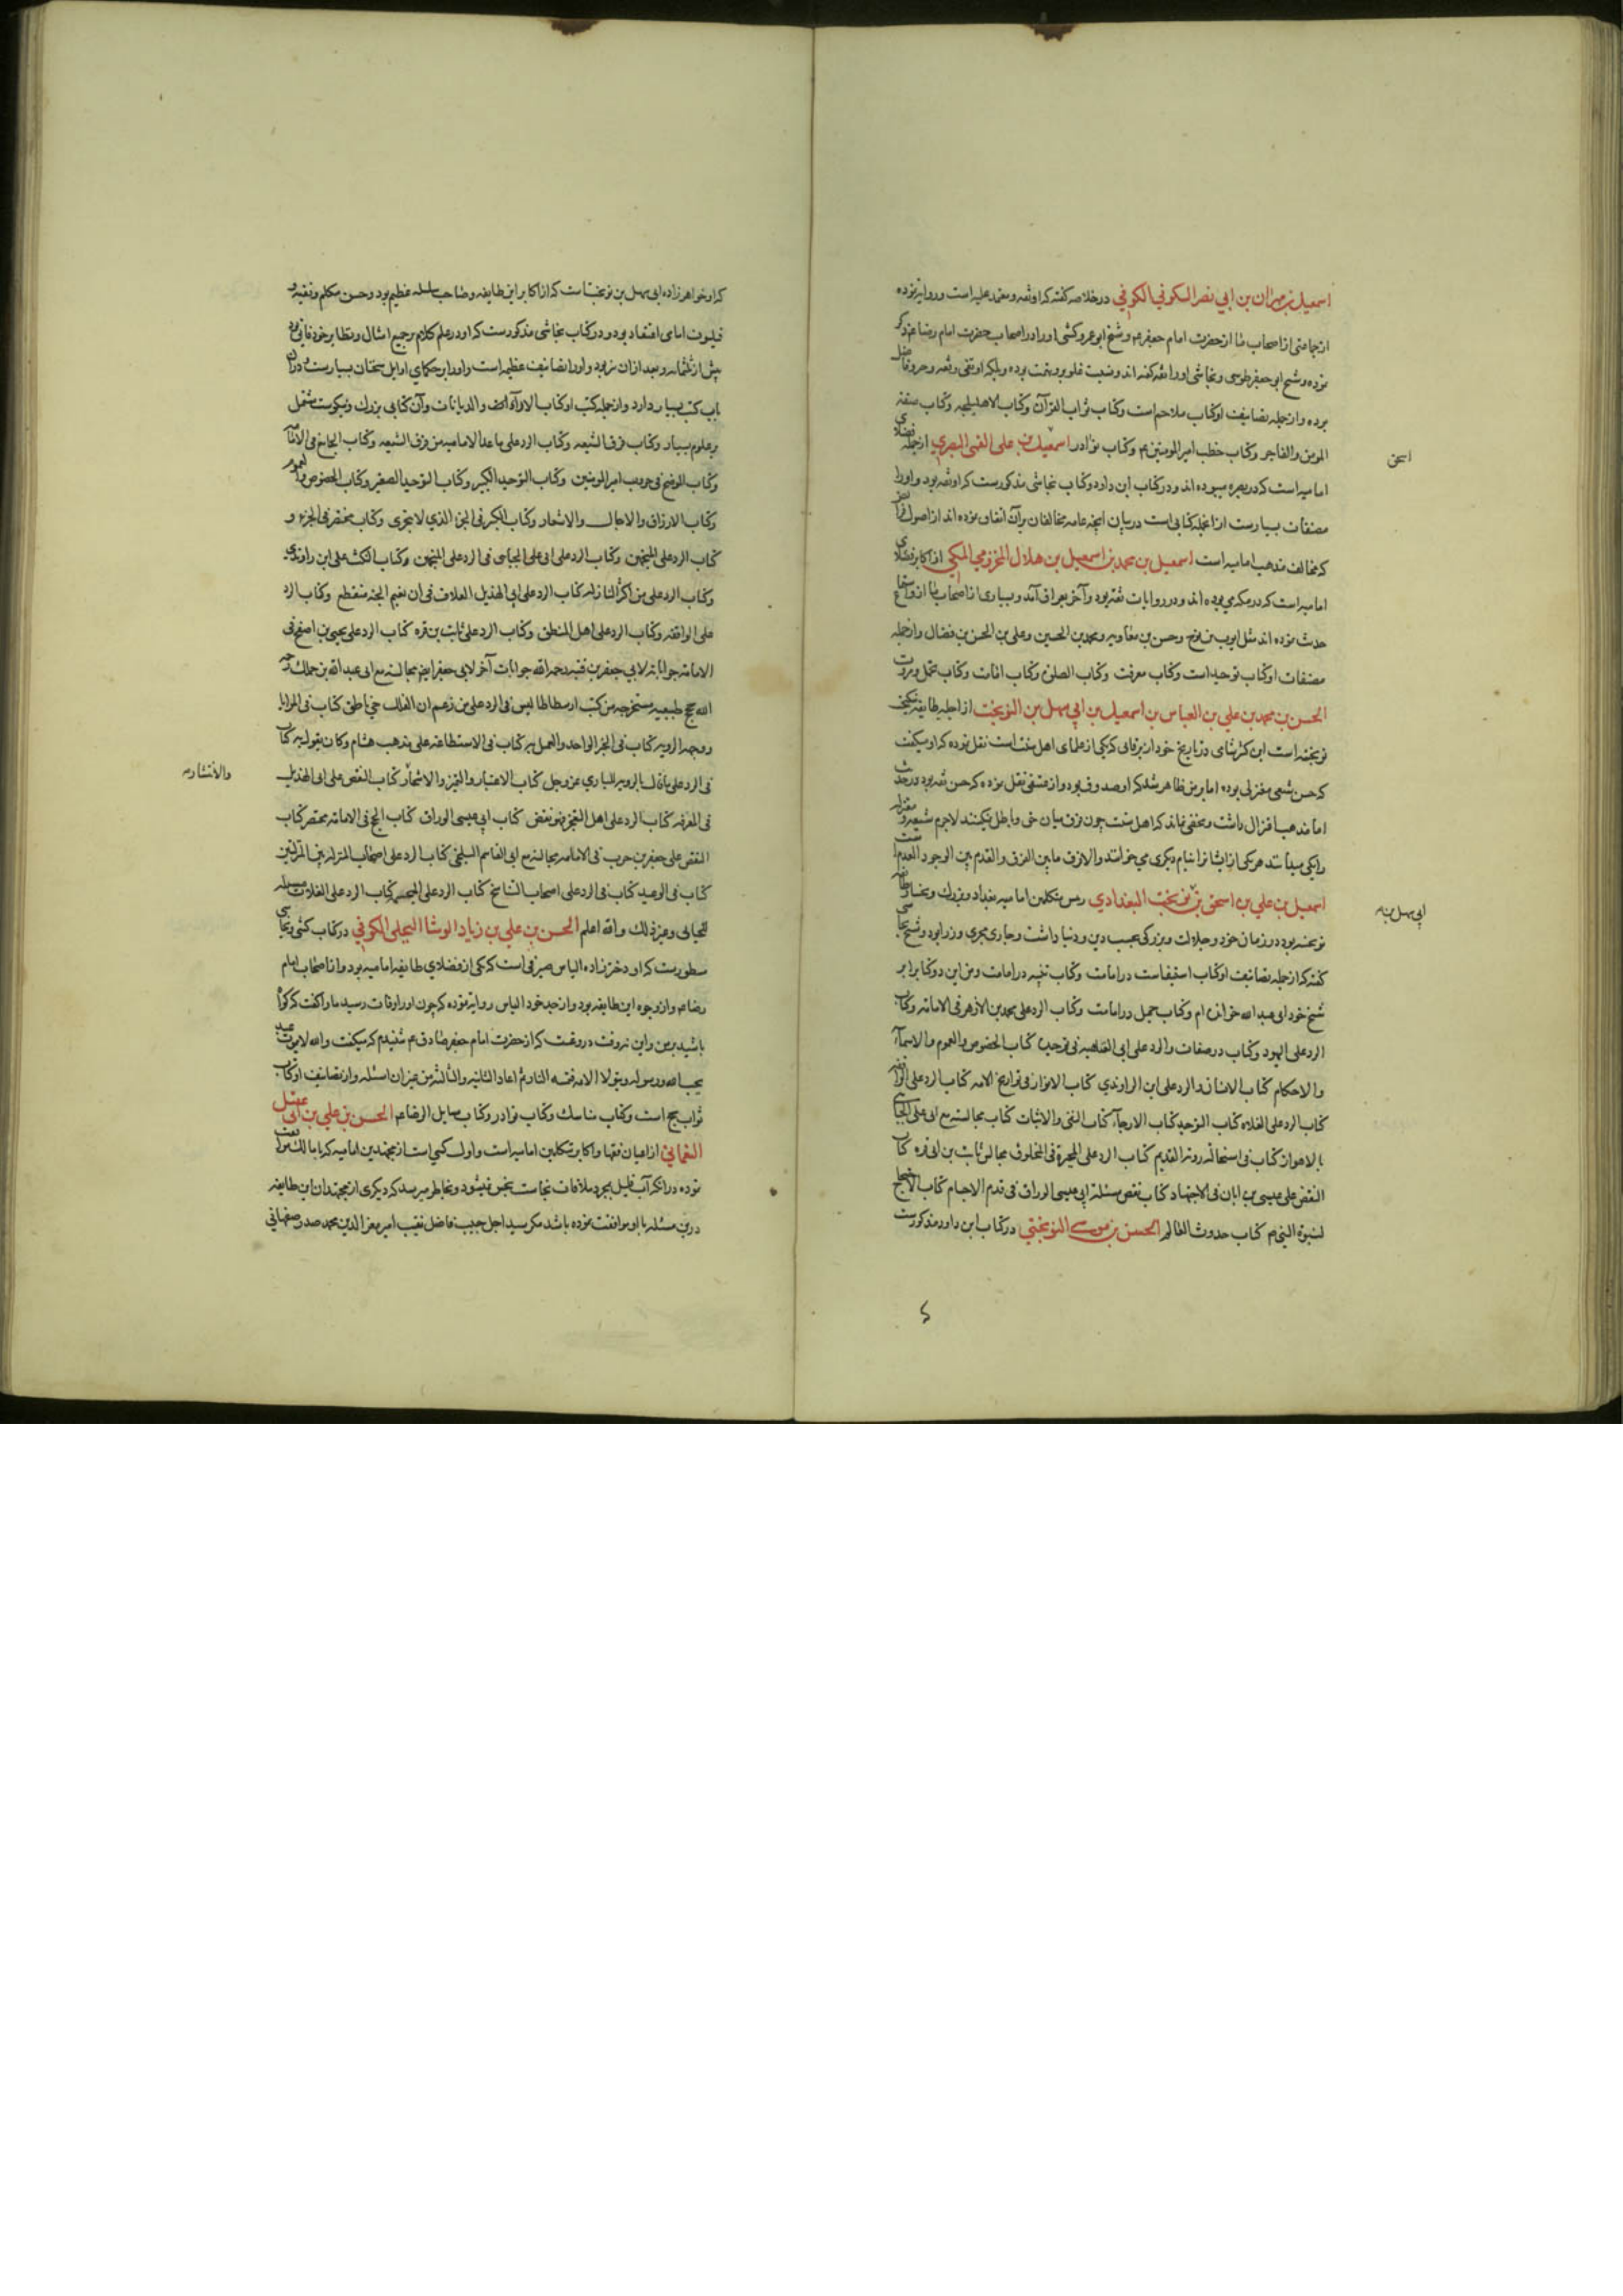 اسمعیل بن مهران بن ابی نصر السکونی الکوفی در خلاصه گفته که او ثقه و معتمد علیه است و روایه نموده
از جماعتی از اصحاب ما از حضرت امام جعفر ع و شیخ ابو عمرو کشی او را در اصحاب حضرت امام رضا ع ذکر
نموده و شیخ ابو جعفر طوسی و نجاشی او را ثقه گفته اند و نسبت غلو برو تهمت بوده و بلکه او تقی و ثقه و خیر و فاضل
بوده و از جمله تصانیف او کتاب ملاحم است و کتاب ثواب القرآن و کتاب الاهلیلجه و کتاب صفة
المومن و الفاجر و کتاب خطب امیر المومنین ع و کتاب نوادر اسمعیل بن علی القمی البصری از جمله فضلای
اسحق
امامیه است که در بصره میبوده اند و در کتاب ابن داود و کتاب نجاشی مذکورست که او ثقه بود و او را
مصنفات بسیارست از انجمله کتابی است در بیان آنچه عامه مخالفان بر آن اتفاق نموده اند از اصول
که مخالف مذهب امامیه است اسمعیل بن محمد بن اسمعیل بن هلال المخزومی المکی از اکابر فضلای
امامیه است که در مکه می بوده اند و در روایات ثقه بود و آخر بعراق آمد و بسیاری از اصحاب ما ازو سماع
حدیث نموده اند مثل ایوب بن نوح و حسن بن معاویه و محمد بن الحسین و علی بن الحسن بن فضال و از جمله
مصنفات او کتاب توحید است و کتاب معرفت و کتاب الصلوة و کتاب امامت و کتاب تجمل و مروت
الحسن بن محمد بن علی بن العباس بن اسمعیل بن ابی سهل بن النوبخت از اجله طایفه
نوبختیه است ابن کثیر شامی در تاریخ خود از برقانی که یکی از علمای اهل سنت است نقل نموده که او میگفت
که حسن شیعی معتزلی بوده اما بر من ظاهر شد که او صدوق بود و از عتیقی نقل نموده که حسن ثقه بود در حدیث
اما مذهب اعتزال داشت و مخفی نماند که اهل سنت چون فرق میان حق و باطل نمیکنند لاجرم شیعه و معتزله
را یکی میدانند هر یکی از ایشان را بنام دیگری می خوانند والا فرق ما بین الفرق و القدم بین الوجود و العدم
اسمعیل بن علی بن اسحق بن نوبخت البغدادی رییس متکلمین امامیه بغداد و بزرگ و پیشوای طایفه
ابی سهل بن
نوبختیه بود در زمان خود و جلالت و بزرگی بحسب دین و دنیا داشت و جاری مجری وزرا بود و شیخ نجاشی
گفته که از جمله تصانیف او کتاب استیفاست در امامت و کتاب تنبیه در امامت و من این دو کتاب را بر
شیخ خود ابی عبد الله خوانده ام و کتاب جمل در امامت و کتاب الرد علی محمد بن الازهر فی الامامه و کتاب
الرد علی الیهود و کتاب در صفات و الرد علی ابی العتاهیه فی توحید کتاب الخصوص و العموم و الاسمآء
و الاحکام کتاب الانسان و الرد علی ابن الراوندی کتاب الانوار فی تواریخ الائمه کتاب الرد علی الواقفه
کتاب الرد علی الغلاه کتاب التوحید کتاب الارجآء کتاب النفی و الاثبات کتاب مجالسته مع ابی علی الجبائی
بالاهواز کتاب فی استحاله رویة القدیم کتاب الرد علی المجبرة فی المخلوق مجالس ثابت بن ابی قره کتاب
النقض علی عیسی بن ابان فی الاجتهاد کتاب نقض مسئلة ابی عیسی الوراق فی قدم الاجسام کتاب الاحتجاج
لنبوة النبی ص کتاب حدوث العالم الحسن بن موسی النوبختی در کتاب ابن داود مذکورست
که او خواهر زاده ابی سهل بن نوبخت است که از اکابر این طایفه و صاحب سلسله عظیم بود و حسن متکلم و فقیه و
فیلسوف امامی اعتقاد بود و در کتاب نجاشی مذکورست که او در علم کلام بر جمیع امثال و نظایر خود فایق بود
پیش از ثلثمائه و بعد از آن نیز بود و او را تصانیف عظیمه است و او را بر حکمای اوایل سخنان بسیارست و در آن
باب کتب بسیار دارد و از جمله کتب او کتاب الارآء و الدیانات و آن کتابی بزرگ و نیکوست مشتمل
بر علوم بسیار و کتاب فرق الشیعه و کتاب الرد علی ما عدا الامامیه من فرق الشیعه و کتاب الجامع فی الامامه
و کتاب الموضح فی حروب امیر المومنین و کتاب التوحید الکبیر و کتاب التوحید الصغیر و کتاب الخصوص و العموم
و کتاب الارزاق و الاجال و الاسعار و کتاب الکبیر فی الجزء الذی لا یتجزی و کتاب مختصر فی الجزء و
کتاب الرد علی المنجمین و کتاب الرد علی ابی علی الجبائی فی الرد علی المنجمین و کتاب النکت علی ابن راوندی
و کتاب الرد علی من اکثر المنازله کتاب الرد علی ابی الهذیل العلاف فی ان نعیم الجنة منقطع و کتاب الرد
علی الواقفه و کتاب الرد علی اهل المنطق و کتاب الرد علی ثابت بن قره کتاب الرد علی یحیی بن اصفح فی
الامامه جواباته لابی جعفر بن قبه رحمه الله جوابات آخر لابی جعفر ایضا مجالسته مع ابی عبد الله بن مملک رحمه
الله حجج طبیعیه مستخرجه من کتب ارسطاطالیس فی الرد علی من زعم ان الفلک حی ناطق کتاب فی المرایا
و جهه الرویه کتاب فی الخبر الواحد و العمل به کتاب فی الاستطاعه علی مذهب هشام و کان یقول به کتاب
فی الرد علی من قال بالرویه للباری عز و جل کتاب الاعتبار و التمیز و الانتصار کتاب النقض علی ابی الهذیل
فی المعرفه کتاب الرد علی اهل التعجیز و هو نقض کتاب ابی عیسی الوراق کتاب الحجج فی الامامه مختصر کتاب
النقض علی جعفر بن حرب فی الامامه مجالسته مع ابی القاسم البلخی کتاب الرد علی اصحاب المنزله بین المنزلتین
کتاب فی الوعید کتاب فی الرد علی اصحاب التناسخ کتاب الرد علی المجسمه کتاب الرد علی الغلات مسئله
للجبائی و غیر ذلک و الله اعلم الحسن بن علی بن زیاد الوشا البجلی الکوفی در کتاب کشی و نجاشی
مسطورست که او دختر زاده الیاس صیرفی است که یکی از فضلای طایفه امامیه بود و از اصحاب امام
رضا ع و از وجوه این طایفه بود و از جد خود الیاس روایه نموده که چون او را وفات رسید ما را گفت که گواه
باشید بر من و این نه وقت دروغست که از حضرت امام جعفر صادق ع شنیدم که میگفت و الله لا یموت عبد
یحب الله و رسوله و یتولا الائمه فتمسه النار ثم اعاد الثانیه و الثالثه من غیر ان اسئله و از تصانیف او کتاب
ثواب حج است و کتاب مناسک و کتاب نوادر و کتاب مسایل الرضا ع الحسن بن علی بن ابی عقیل
العمانی از اعیان فقها و اکابر متکلمین امامیه است و اول کسی است از مجتهدین امامیه که با مالک موافقت
نموده در انکه آب قلیل بمجرد ملاقات نجاست نجس نمیشود و بخاطر میرسد که دیگری از مجتهدان این طایفه
درین مسئله با او موافقت نموده باشد مگر سید اجل حسیب فاضل نقیب امیر معز الدین محمد صدر صفهانی